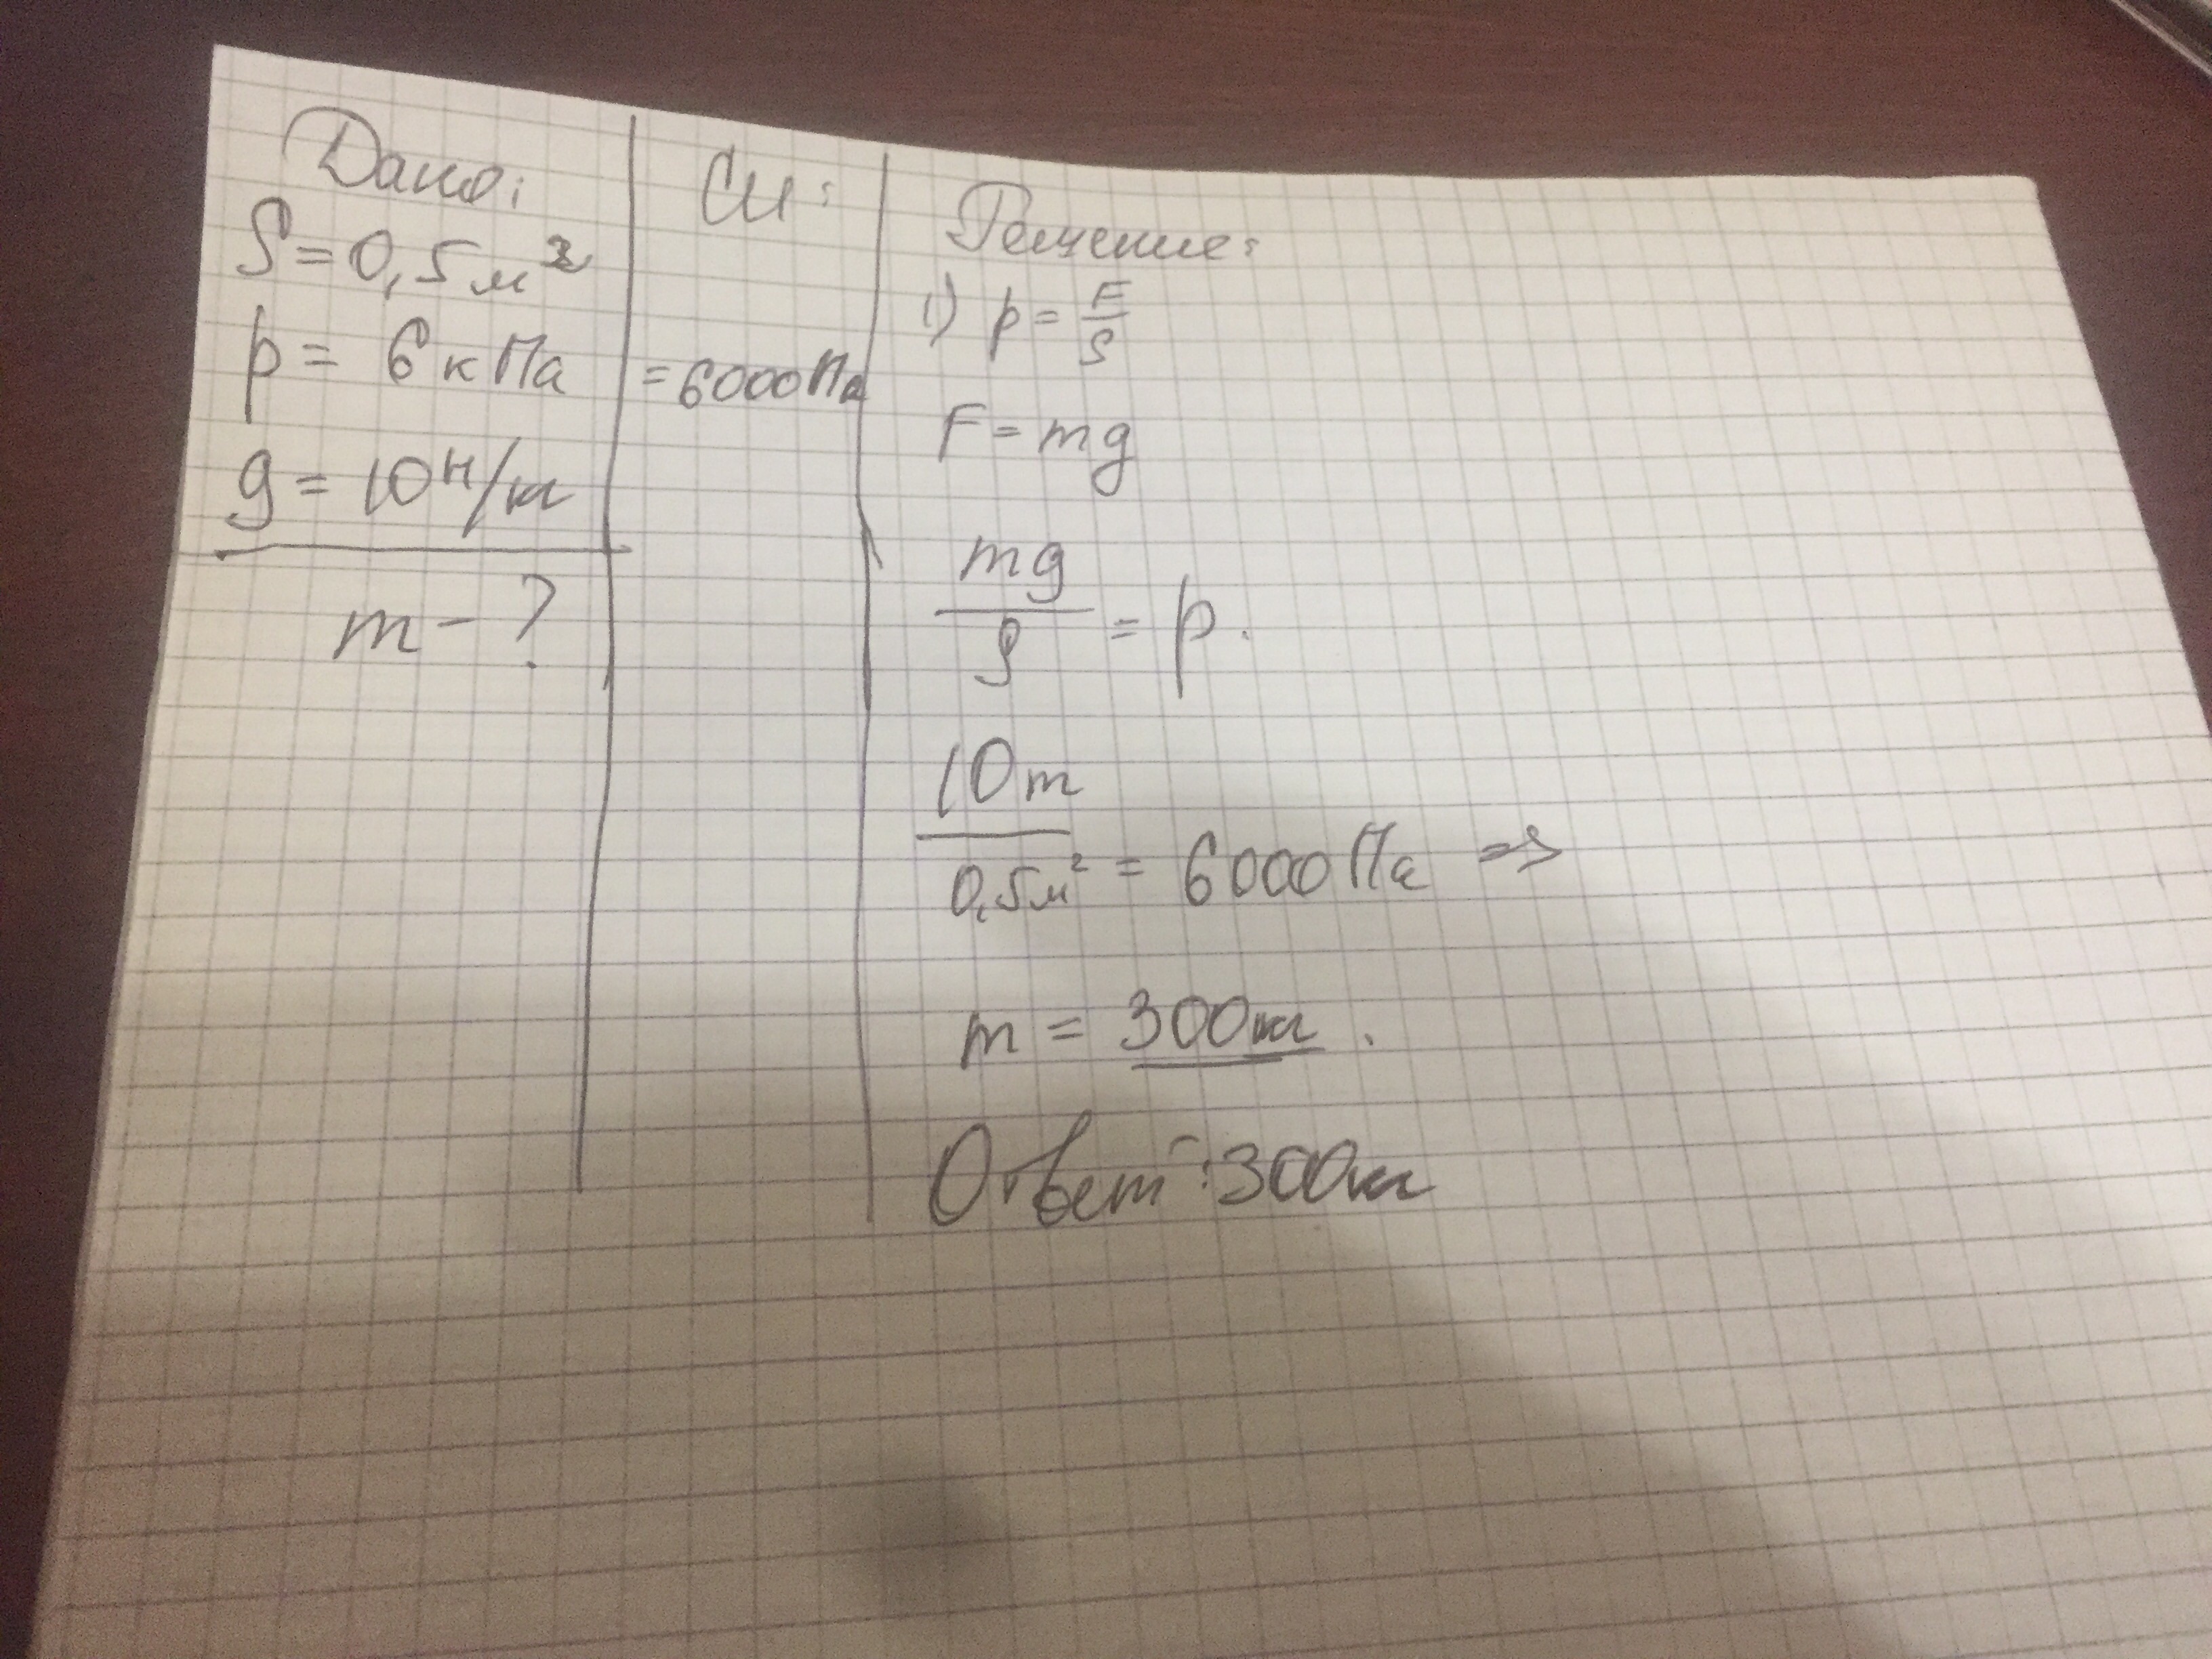 Дано:
S = 0,5 м²
p = 6 кПа
g = 10 Н/кг
m - ?
СИ:
= 6000 Па
Решение:
1) p = F/S
F = mg
mg/S = p.
10m/0,5м² = 6000 Па ⇒
m = 300кг.
Ответ: 300кг